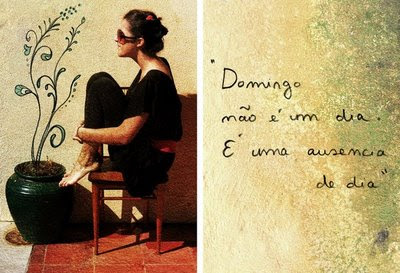 "Domingo
não é um dia.
É uma ausencia
de dia"